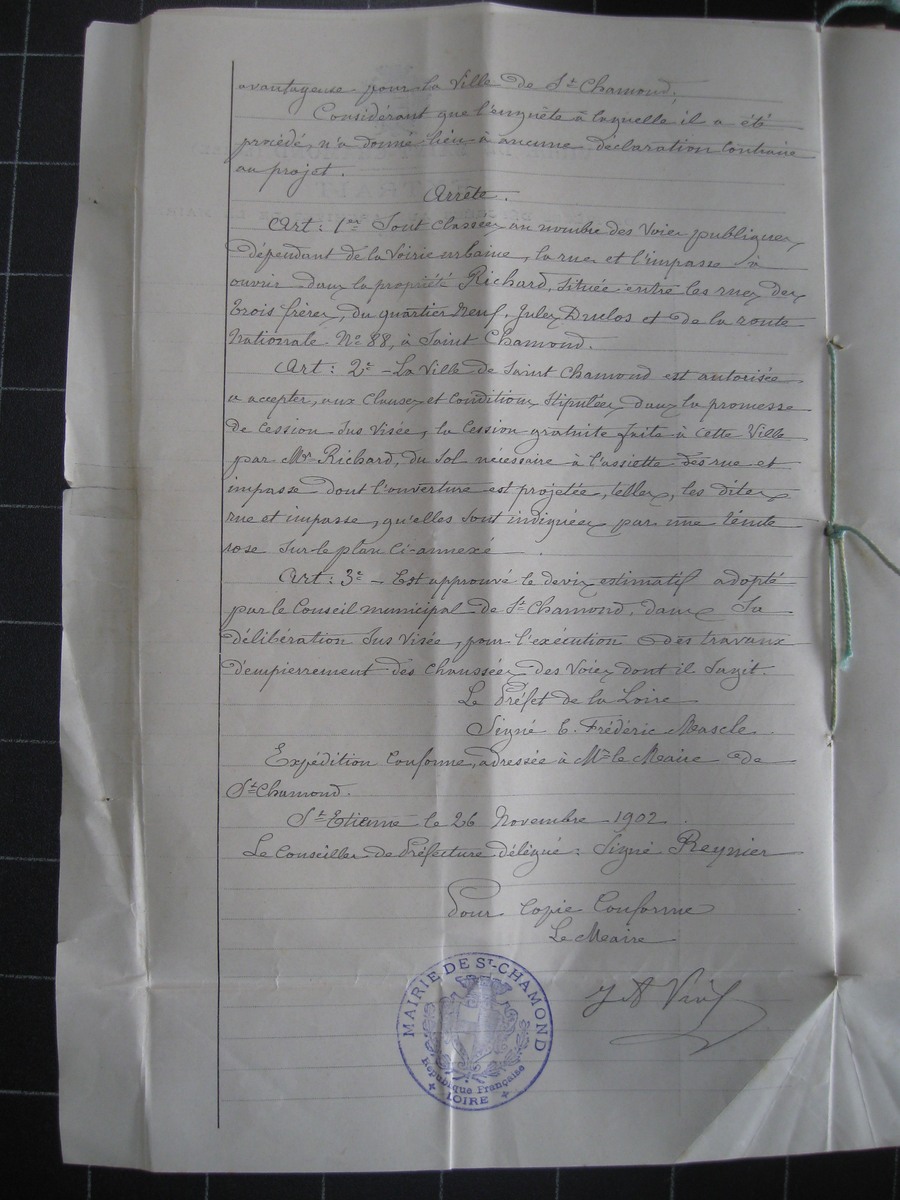 avantageuse pour la Ville de St Chamond;
Considérant que l'enquête à laquelle il a été
procédé, n'a donné lieu à aucune déclaration contraire
au projet.
Arrête.
Art: 1er Sont classées au nombre des Voies publiques,
dépendant de la Voirie urbaine, la rue et l'impasse à
ouvrir dans la propriété Richard, située entre les rues des
trois frères, du quartier Neuf, Jules Duclos et de la route
Nationale No 88, à Saint Chamond.
Art: 2e - La Ville de Saint Chamond est autorisée
à accepter, aux clauses et conditions stipulées dans la promesse
de cession sus visée, la cession gratuite faite à cette Ville
par Mr Richard, du sol nécessaire à l'assiette des rue et
impasse dont l'ouverture est projetée, telles, les dites
rue et impasse, qu'elles sont indiquées par une teinte
rose sur le plan ci-annexé.
Art: 3e - Est approuvé le devis estimatif adopté
par le Conseil municipal de St Chamond, dans sa
délibération sus visée, pour l'exécution des travaux
d'empierrement des chaussées des Voies dont il s'agit.
Le Préfet de la Loire
Signé E. Frédéric Mascle.
Expédition conforme, adressée à Mr le Maire de
St Chamond.
St Etienne le 26 Novembre 1902.
Le Conseiller de Préfecture délégué: Signé Reynier
Pour copie conforme
Le Maire
MAIRIE DE ST-CHAMOND
République Française
LOIRE